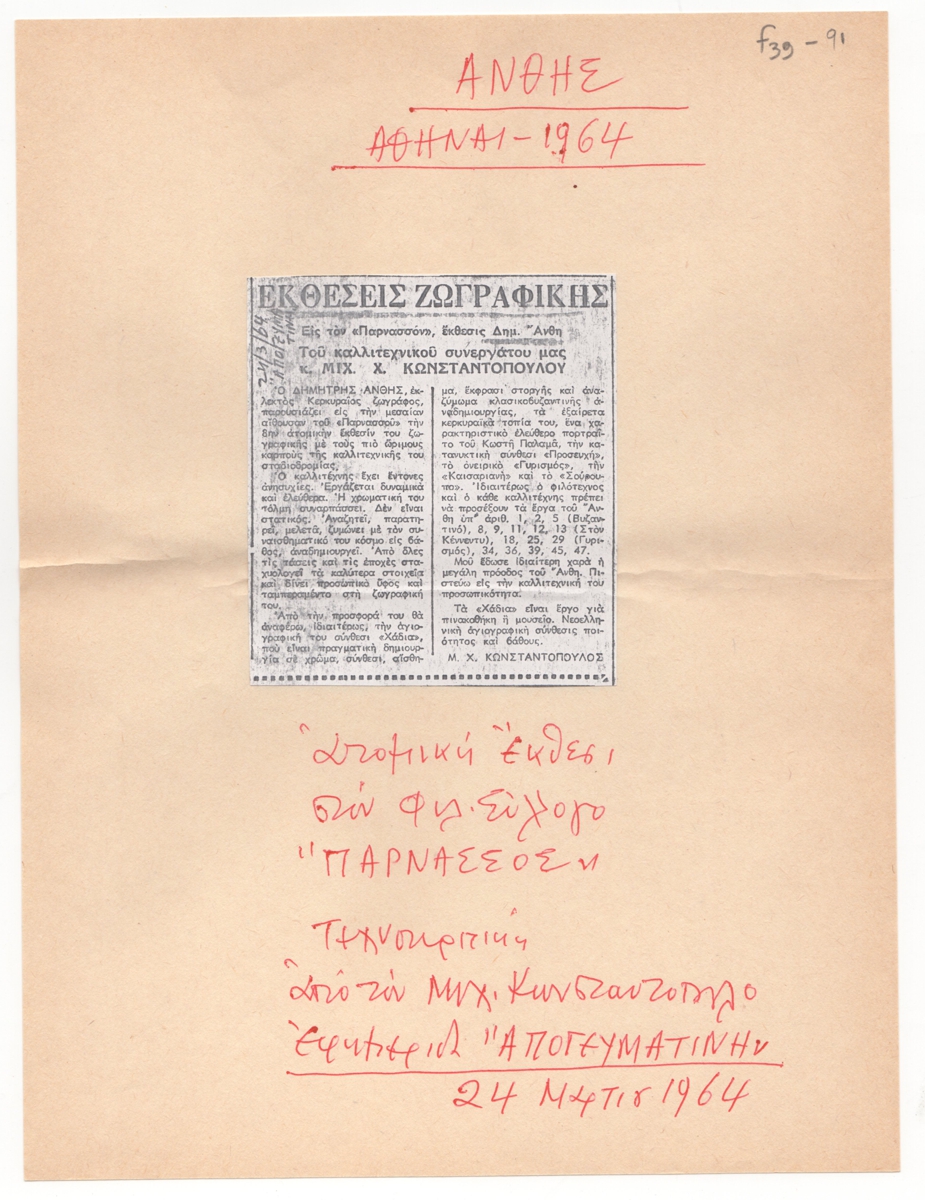 f39-91
ΑΝΘΗΣ
ΑΘΗΝΑΙ-1964
ΕΚΘΕΣΕΙΣ ΖΩΓΡΑΦΙΚΗΣ
24/3/64
ΑΠΟΓΕΥΜΑ
ΤΙΝΗ
Εἰς τὸν «Παρνασσόν», ἔκθεσις Δημ. Ἄνθη
Τοῦ καλλιτεχνικοῦ συνεργάτου μας
κ. ΜΙΧ. Χ. ΚΩΝΣΤΑΝΤΟΠΟΥΛΟΥ
Ὁ ΔΗΜΗΤΡΗΣ ΑΝΘΗΣ, ἐκ-
λεκτὸς Κερκυραῖος ζωγράφος,
παρουσιάζει εἰς τὴν μεσαίαν
αἴθουσαν τοῦ «Παρνασσοῦ» τὴν
8ην ἀτομικὴν ἔκθεσίν του ζω-
γραφικῆς μὲ τοὺς πιὸ ὥριμους
καρποὺς τῆς καλλιτεχνικῆς του
σταδιοδρομίας.
Ὁ καλλιτέχνης ἔχει ἔντονες
ἀνησυχίες. Ἐργάζεται δυναμικὰ
καὶ ἐλεύθερα. Ἡ χρωματική του
τόλμη συναρπάσσει. Δὲν εἶναι
στατικός. Ἀναζητεῖ, παρατη-
ρεῖ, μελετᾶ, ζυμώνει μὲ τὸν συ-
ναισθηματικό του κόσμο εἰς βά-
θος, ἀναδημιουργεῖ. Ἀπὸ ὅλες
τὶς τάσεις καὶ τὶς ἐποχὲς στα-
χυολογεῖ τὰ καλύτερα στοιχεῖα
καὶ δίνει προσωπικὸ ὕφος καὶ
ταμπεραμέντο στὴ ζωγραφική
του.
Ἀπὸ τὴν προσφορά του θὰ
ἀναφέρω, ἰδιαιτέρως, τὴν ἁγιο-
γραφική του σύνθεσι «Χάδια»,
ποὺ εἶναι πραγματικὴ δημιουρ-
γία σὲ χρῶμα, σύνθεσι, αἴσθη-
μα, ἔκφρασι στοργῆς καὶ ἀνα-
ζύμωμα κλασικοβυζαντινῆς ἀ-
ναδημιουργίας, τὰ ἐξαίρετα
κερκυραϊκὰ τοπία του, ἕνα χα-
ρακτηριστικὸ ἐλεύθερο πορτραῖ-
το τοῦ Κωστῆ Παλαμᾶ, τὴν κα-
τανυκτικὴ σύνθεσι «Προσευχή»,
τὸ ὀνειρικὸ «Γυρισμός», τὴν
«Καισαριανὴ» καὶ τὸ «Σούρου-
πο». Ἰδιαιτέρως ὁ φιλότεχνος
καὶ ὁ κάθε καλλιτέχνης πρέπει
νὰ προσέξουν τὰ ἔργα τοῦ Ἄν-
θη ὑπ' ἀριθ. 1, 2, 5 (Βυζαν-
τινό), 8, 9, 11, 12, 13 (Στὸν
Κέννεντυ), 18, 25, 29 (Γυρι-
σμός), 34, 36, 39, 45, 47.
Μοῦ ἔδωσε ἰδιαίτερη χαρὰ ἡ
μεγάλη πρόοδος τοῦ Ἄνθη. Πι-
στεύω εἰς τὴν καλλιτεχνική του
προσωπικότητα.
Τὰ «Χάδια» εἶναι ἔργο γιὰ
πινακοθήκη ἢ μουσεῖο. Νεοελλη-
νικὴ ἁγιογραφικὴ σύνθεσις ποι-
ότητος καὶ βάθους.
Μ. Χ. ΚΩΝΣΤΑΝΤΟΠΟΥΛΟΣ
Ἀτομικὴ Ἔκθεσι
στὸν Φιλ. Σύλλογο
"ΠΑΡΝΑΣΣΟΣ"
Τεχνοκριτικὴ
Ἀπὸ τὸν Μιχ. Κωνσταντόπουλο
Ἐφημερίδα "ΑΠΟΓΕΥΜΑΤΙΝΗ"
24 Μαρτίου 1964